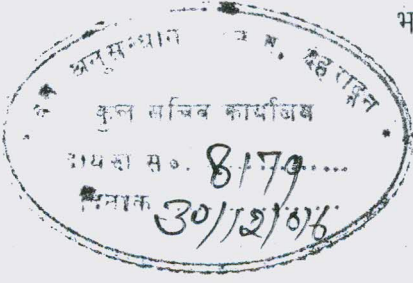 भ
वन अनुसन्धान देहरादून
कुल सचिव कार्यालय
डायरी सं०. 8179
दिनांक 30/12/016